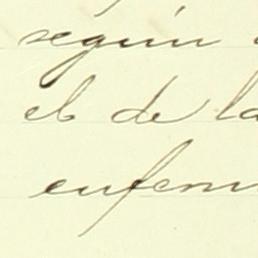 según
el de la
enferm